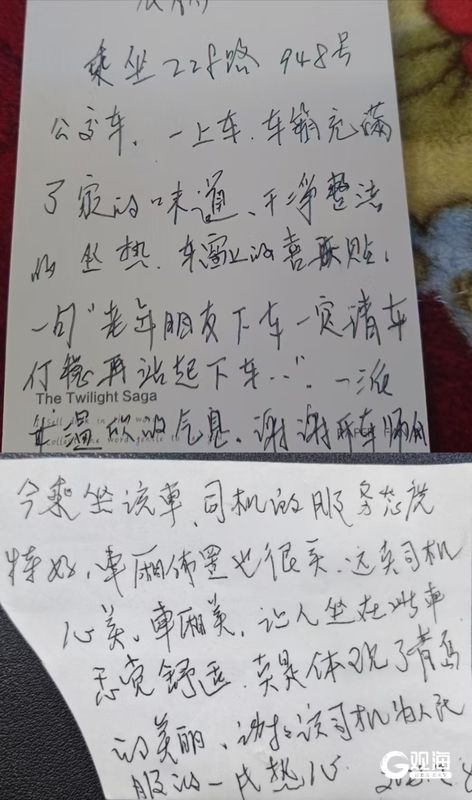 乘坐228路948号
公交车，一上车，车箱充满
了家的味道、干净整洁
的坐热，车窗上的喜联贴，
一句“老年朋友下车一定请车
停稳再站起下车…”，一派
The Twilight Saga
温的气息，谢谢
今乘坐该車，司机的服务态度
特好，車厢佈置也很美，这真司机
心美，車厢美，让人坐在此車
感觉舒适，真是体现了青岛
的美丽，谢谢该司机为人民
服的一片热心
G观海